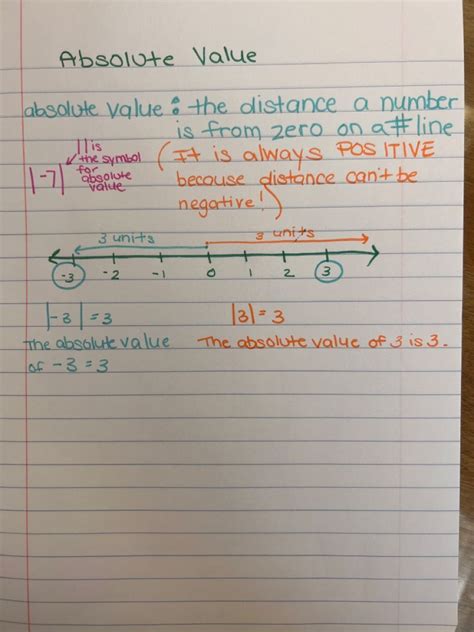 Absolute Value
absolute value: the distance a number
is from zero on a # line
|-7|
|| is
the symbol
for
absolute
value
(It is always POSITIVE
because distance can't be
negative!)
3 units
3 units
-3 -2 -1 0 1 2 3
|-3| = 3
|3| = 3
The absolute value
of -3 = 3
The absolute value of 3 is 3.